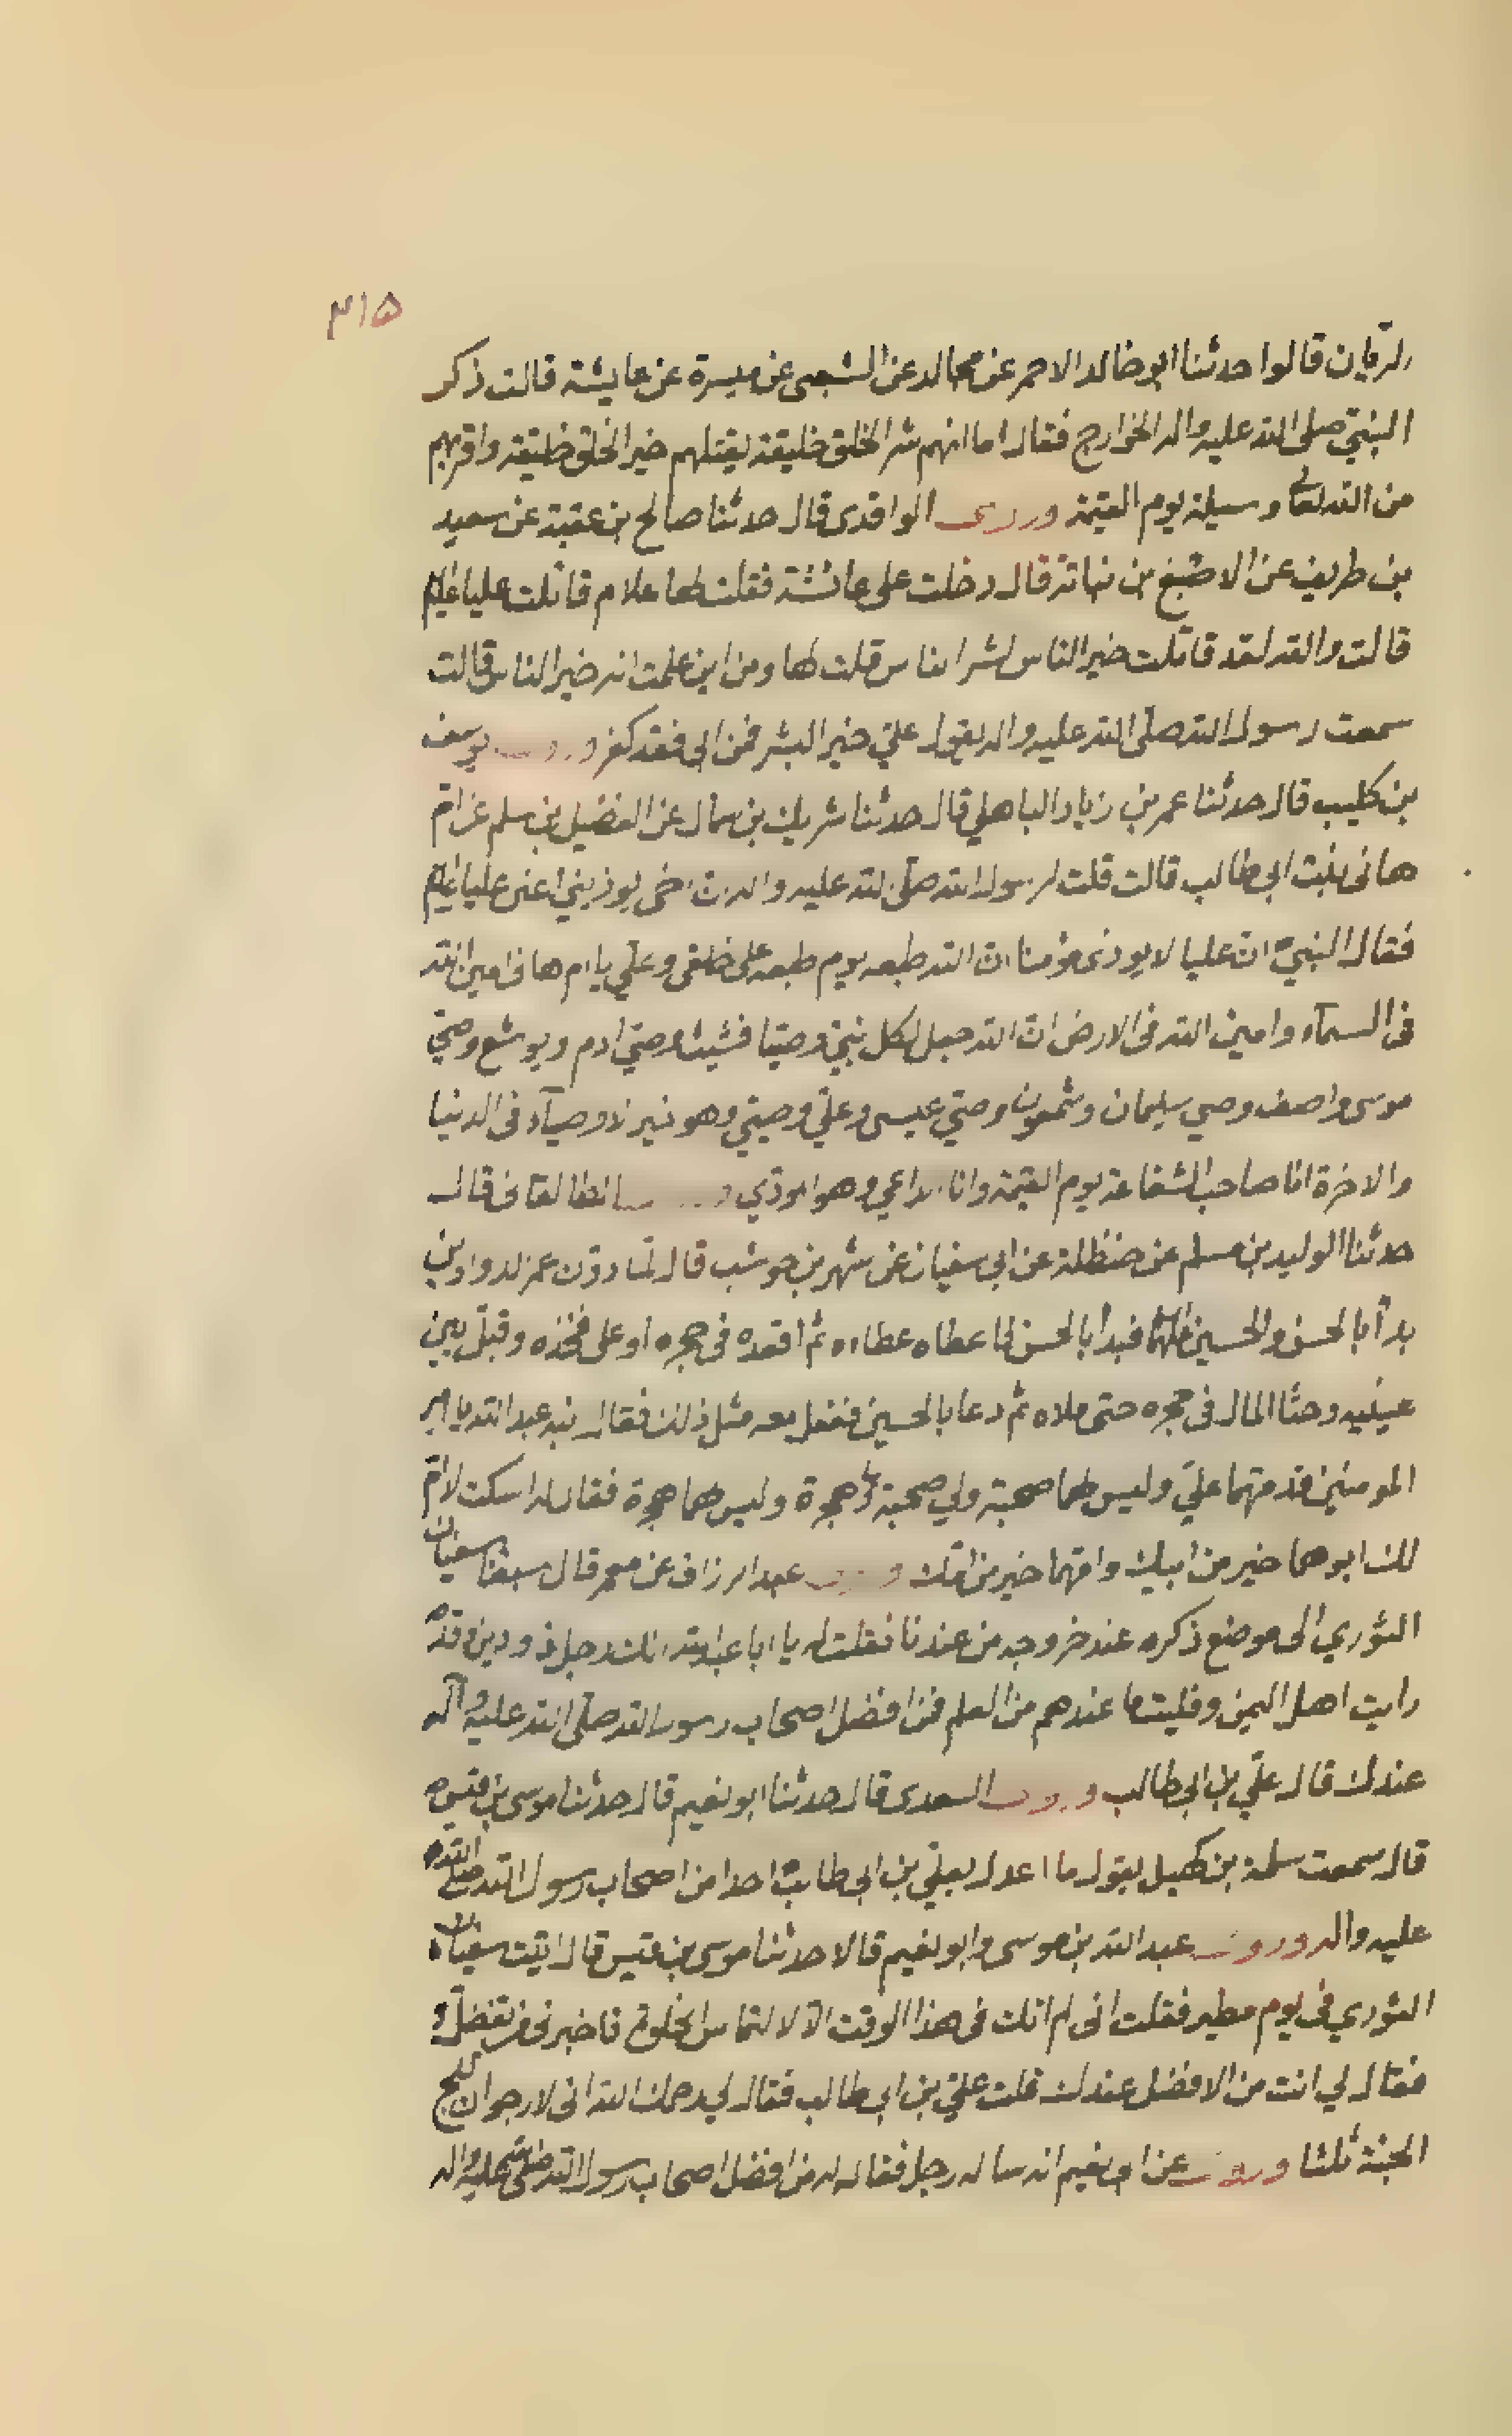 ٣١٥
الريان قالوا حدثنا ابو خالد الاحمر عن مجالد عن الشعبى عن ميسرة عن عايشة قالت ذكر
النبيّ صلى الله عليه واله الخوارج فقال اما انهم شر الخلق خليقة يقتلهم خير الخلق خليقة واقربهم
من الله تعالى وسيلة يوم القيمة وروى الواقدى قال حدثنا صالح بن عقبة عن سعيد
بن طريف عن الاصبغ بن نباتة قال دخلت على عائشة فقلت لها علام قاتلت عليا
قالت والله لقد قاتلت خير الناس لشر الناس قلت لها ومن اين علمت انه خير الناس قالت
سمعت رسول الله صلّى الله عليه واله يقول عليّ خير البشر فمن ابى فقد كفر يوسف
بن كليب قال حدثنا عمر بن زياد الباهلي قال حدثنا شريك بن عن الفضيل بن سلم عن امّ
هانى بنت ابى طالب قالت قلت لرسول الله صلّى الله عليه واله انّ اخى يوذيني اعنى عليا
فقال النبيّ انّ عليا لا يوذى مؤمنا انّ الله طبعه يوم طبعه على خلقى وعليّ يا ام هانى امين الله
فى السمآء وامين الله فى الارض انّ الله جعل لكل نبيّ وصيّا فشيث وصيّ ادم ويوشع وصيّ
موسى واصف وصي سليمان وشمعون وصيّ عيسى وعليّ وصيّي وهو خير الاوصيآء فى الدنيا
والاخرة انا صاحب الشفاعة يوم القيمة وانا الداعي وهو الموذي الطالقانى قال
حدثنا الوليد بن مسلم عن حنظلة عن ابى سفيان عن شهر بن حوشب قال لمّا دوّن عمر الدواوين
بدأ بالحسن والحسين فبدأ بالحسن لما عطاه عطاءه ثم اقعده فى حجره او على فخذه وقبّل بين
عينيه وحثا المال فى حجره حتى ملاه ثم دعا بالحسين ففعل معه مثل ذلك فقال ابنه عبد الله يا امير
المومنين قدمتهما عليّ وليس لهما صحبة ولي صحبة وهجرة وليس لهما هجرة فقال له اسكت لا امّ
لك ابوهما خير من ابيك وامّهما خير من امّك وروى عبد الرزاق عن معمر قال سفيان
الثوري الى موضع ذكره عند خروجه من عندنا فقلت له يا ابا عبد الله انك لرجل ذو دين وقد
رايت اهل اليمن وفليت ما عندهم من العلم فمن افضل اصحاب رسول الله صلّى الله عليه وآله
عندك قال عليّ بن ابى طالب وروى السعدى قال حدثنا ابو نعيم قال حدثنا موسى بن قيس
قال سمعت سلمة بن كهيل يقول ما اعدل بعليّ بن ابى طالب احدا من اصحاب رسول الله صلى الله
عليه واله وروى عبد الله بن موسى وابو نعيم قالا حدثنا موسى بن قيس قال اتيت سفيان
الثوري فى يوم مطير فقلت انى لم اتك فى هذا الوقت الّا لالتماس الخلوة فاخبرنى من تفضل
فقال لي انت من الافضل عندك قلت عليّ بن ابى طالب فقال لي يرحمك الله انى لارجو ان تلج
الجنة ثلثا وروى عن ابى نعيم انه ساله رجل فقال له من افضل اصحاب رسول الله صلى الله عليه واله